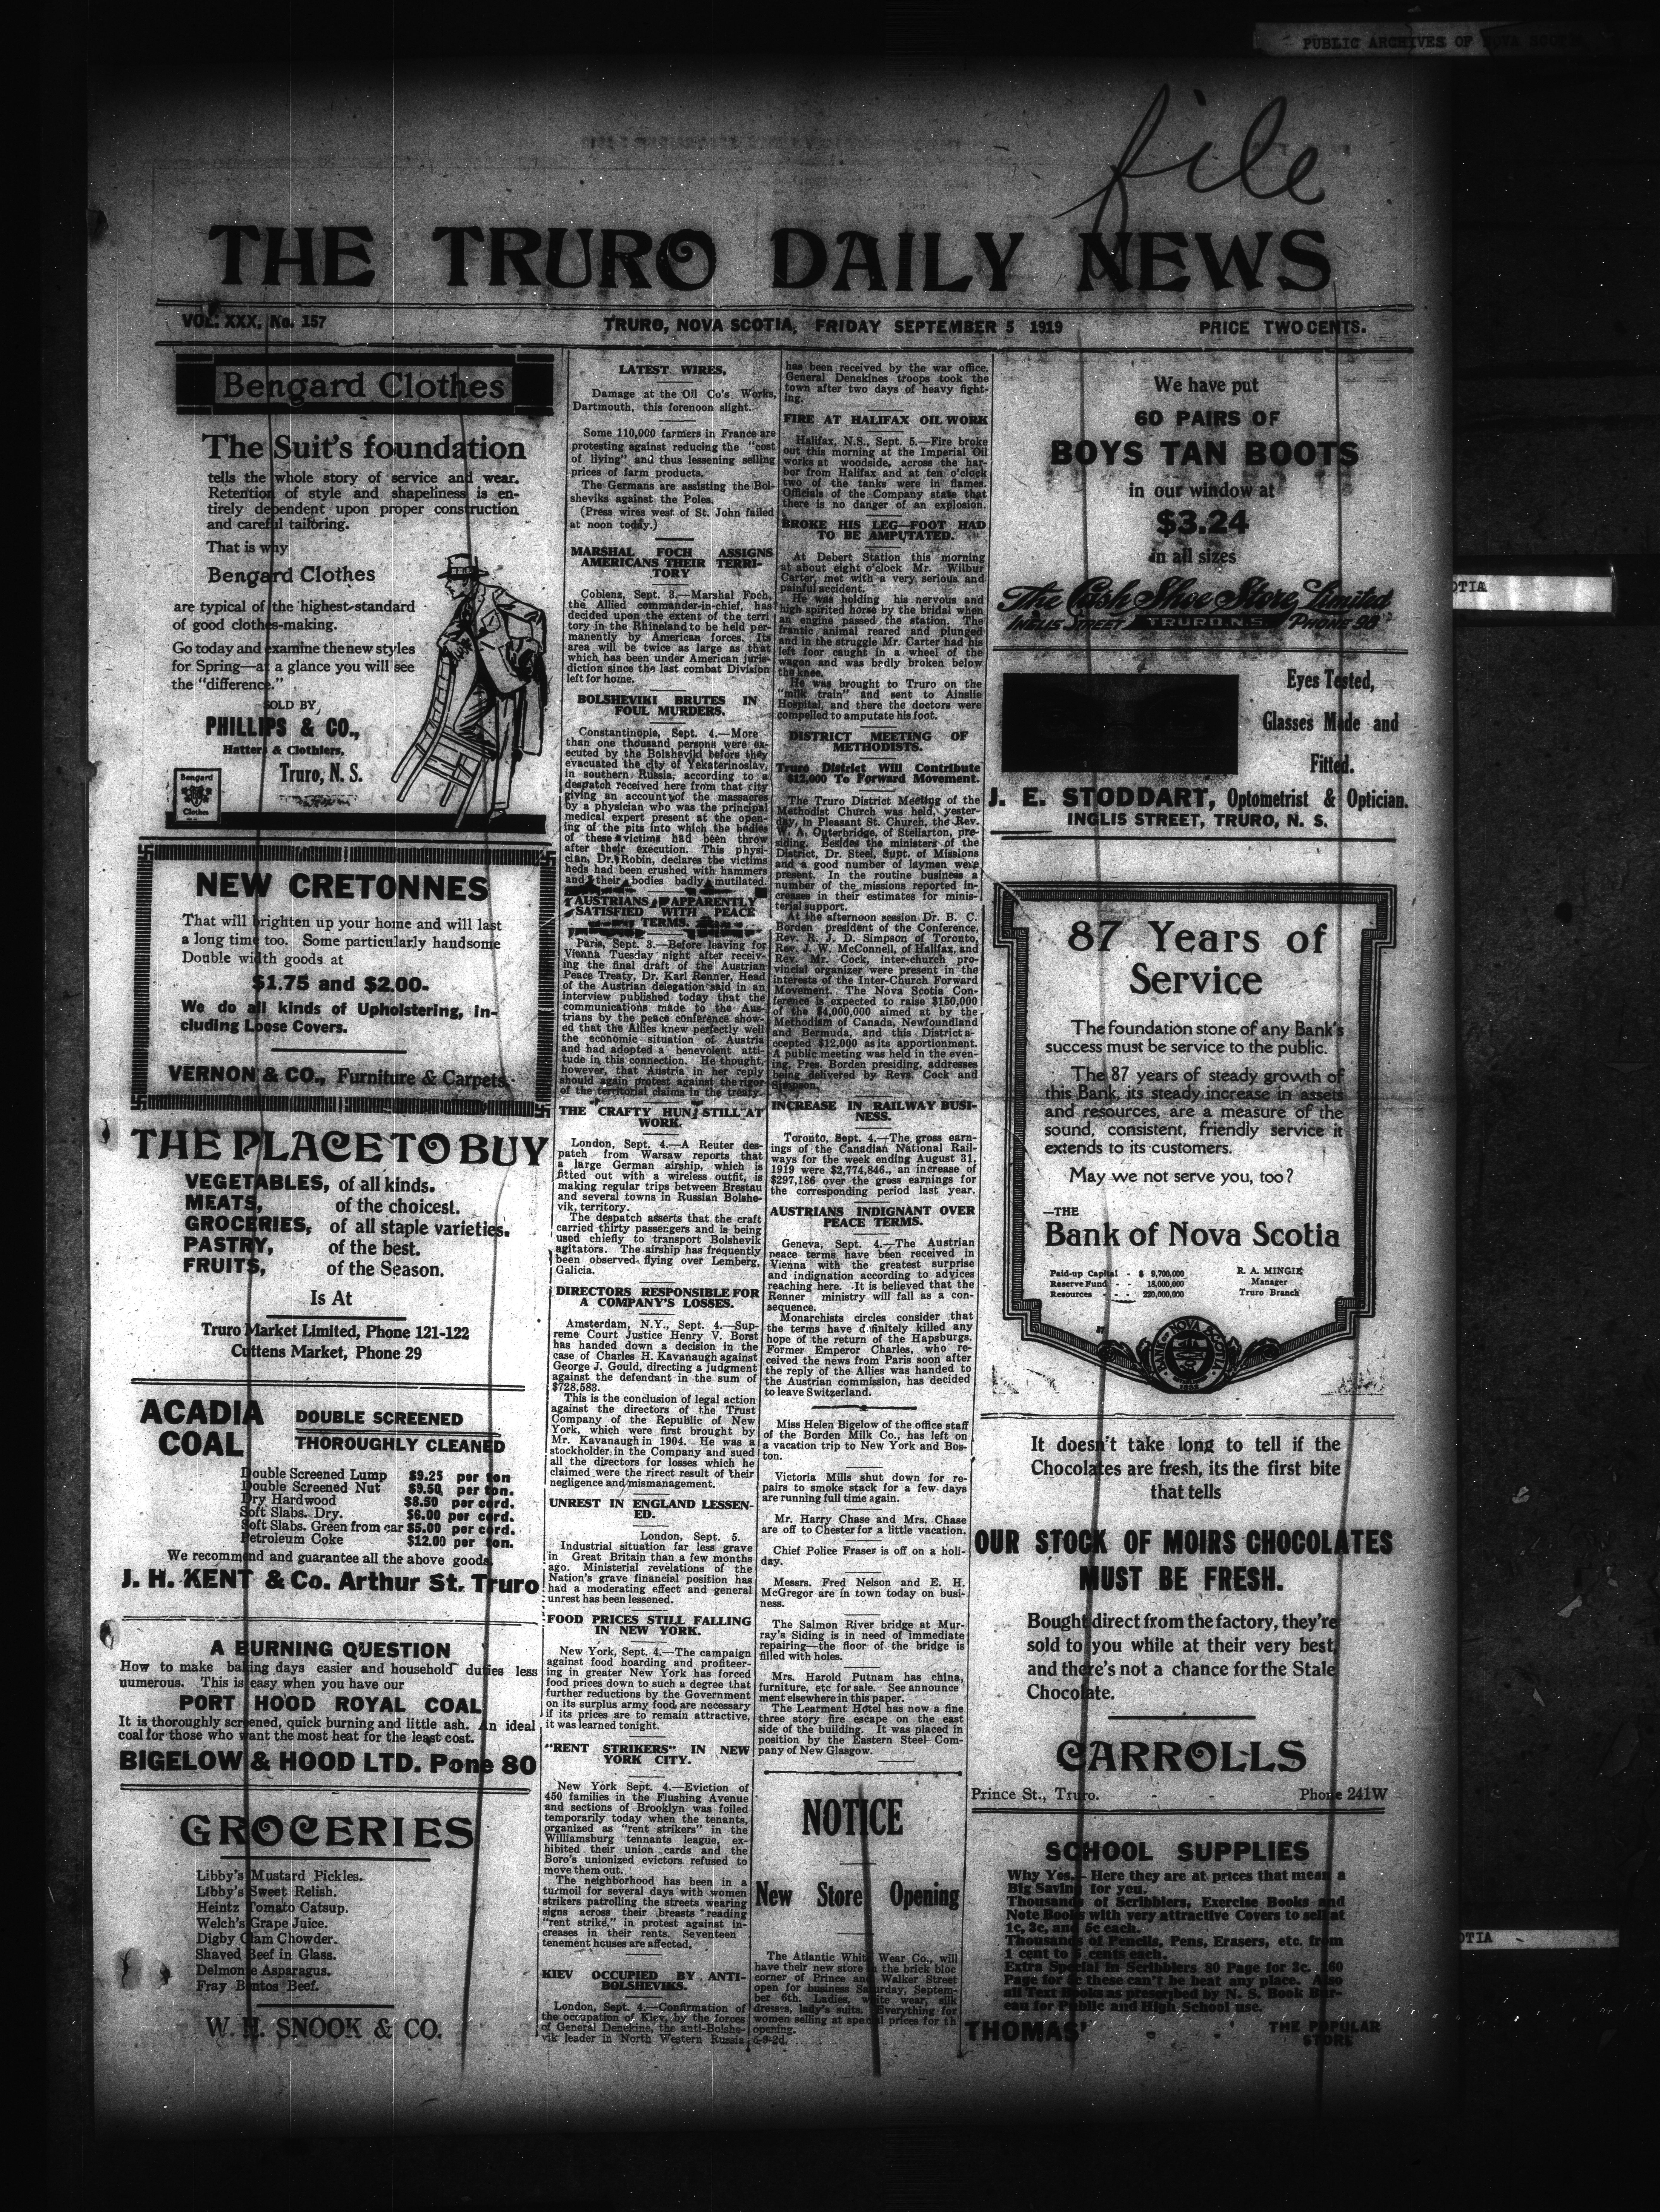 PUBLIC ARCHIVES OF NOVA SCOTIA
file
THE TRURO DAILY NEWS
VOL. XXX, No. 157
TRURO, NOVA SCOTIA, FRIDAY SEPTEMBER 5 1919
PRICE TWO CENTS.
Bengard Clothes
The Suit's foundation
tells the whole story of service and wear.
Retention of style and shapeliness is en-
tirely dependent upon proper construction
and careful tailoring.
That is why
Bengard Clothes
are typical of the highest standard
of good clothes-making.
Go today and examine the new styles
for Spring—at a glance you will see
the "difference."
SOLD BY
PHILLIPS & CO.,
Hatters & Clothiers,
Truro, N. S.
Bengard
Clothes
NEW CRETONNES
That will brighten up your home and will last
a long time too. Some particularly handsome
Double width goods at
$1.75 and $2.00.
We do all kinds of Upholstering, in-
cluding Loose Covers.
VERNON & CO., Furniture & Carpets.
THE PLACE TO BUY
VEGETABLES, of all kinds.
MEATS, of the choicest.
GROCERIES, of all staple varieties.
PASTRY, of the best.
FRUITS, of the Season.
Is At
Truro Market Limited, Phone 121-122
Cuttens Market, Phone 29
ACADIA
COAL
DOUBLE SCREENED
THOROUGHLY CLEANED
Double Screened Lump $9.25 per ton
Double Screened Nut $9.50 per ton.
Dry Hardwood $8.50 per cord.
Soft Slabs. Dry. $6.00 per cord.
Soft Slabs. Green from car $5.00 per cord.
Petroleum Coke $12.00 per ton.
We recommend and guarantee all the above goods.
J. H. KENT & Co. Arthur St. Truro
A BURNING QUESTION
How to make baking days easier and household duties less
numerous. This is easy when you have our
PORT HOOD ROYAL COAL
It is thoroughly screened, quick burning and little ash. An ideal
coal for those who want the most heat for the least cost.
BIGELOW & HOOD LTD. Pone 80
GROCERIES
Libby's Mustard Pickles.
Libby's Sweet Relish.
Heintz Tomato Catsup.
Welch's Grape Juice.
Digby Clam Chowder.
Shaved Beef in Glass.
Delmonte Asparagus.
Fray Bentos Beef.
W. H. SNOOK & CO.
LATEST WIRES,
Damage at the Oil Co's Works,
Dartmouth, this forenoon slight.
Some 110,000 farmers in France are
protesting against reducing the "cost
of living" and thus lessening selling
prices of farm products.
The Germans are assisting the Bol-
sheviks against the Poles.
(Press wires west of St. John failed
at noon today.)
MARSHAL FOCH ASSIGNS
AMERICANS THEIR TERRI-
TORY
Coblenz, Sept. 3.—Marshal Foch,
the Allied commander-in-chief, has
decided upon the extent of the terri
tory in the Rhineland to be held per-
manently by American forces. Its
area will be twice as large as that
which has been under American juris-
diction since the last combat Division
left for home.
BOLSHEVIKI BRUTES IN
FOUL MURDERS.
Constantinople, Sept. 4.—More
than one thousand persons were ex-
ecuted by the Bolsheviki before they
evacuated the city of Yekaterinoslav,
in southern Russia, according to a
despatch received here from that city
giving an account of the massacres
by a physician who was the principal
medical expert present at the open-
ing of the pits into which the bodies
of these victims had been throw
after their execution. This physi-
cian, Dr. Robin, declares the victims
heds had been crushed with hammers
and their bodies badly mutilated.
AUSTRIANS APPARENTLY
SATISFIED WITH PEACE
TERMS.
Paris, Sept. 3.—Before leaving for
Vienna Tuesday night after receiv-
ing the final draft of the Austrian
Peace Treaty, Dr. Karl Renner, Head
of the Austrian delegation said in an
interview published today that the
communications made to the Aus-
trians by the peace conference show-
ed that the Allies knew perfectly well
the economic situation of Austria
and had adopted a benevolent atti-
tude in this connection. He thought,
however, that Austria in her reply
should again protest against the rigor
of the territorial claims in the treaty.
THE CRAFTY HUN STILL AT
WORK.
London, Sept. 4.—A Reuter des-
patch from Warsaw reports that
a large German airship, which is
fitted out with a wireless outfit, is
making regular trips between Brestau
and several towns in Russian Bolshe-
vik, territory.
The despatch asserts that the craft
carried thirty passengers and is being
used chiefly to transport Bolshevik
agitators. The airship has frequently
been observed flying over Lemberg,
Galicia.
DIRECTORS RESPONSIBLE FOR
A COMPANY'S LOSSES.
Amsterdam, N.Y., Sept. 4.—Sup-
reme Court Justice Henry V. Borst
has handed down a decision in the
case of Charles H. Kavanaugh against
George J. Gould, directing a judgment
against the defendant in the sum of
$728,583.
This is the conclusion of legal action
against the directors of the Trust
Company of the Republic of New
York, which were first brought by
Mr. Kavanaugh in 1904. He was a
stockholder in the Company and sued
all the directors for losses which he
claimed were the rirect result of their
negligence and mismanagement.
UNREST IN ENGLAND LESSEN-
ED.
London, Sept. 5.
Industrial situation far less grave
in Great Britain than a few months
ago. Ministerial revelations of the
Nation's grave financial position has
had a moderating effect and general
unrest has been lessened.
FOOD PRICES STILL FALLING
IN NEW YORK.
New York, Sept. 4.—The campaign
against food hoarding and profiteer-
ing in greater New York has forced
food prices down to such a degree that
further reductions by the Government
on its surplus army food are necessary
if its prices are to remain attractive,
it was learned tonight.
"RENT STRIKERS" IN NEW
YORK CITY.
New York Sept. 4.—Eviction of
450 families in the Flushing Avenue
and sections of Brooklyn was foiled
temporarily today when the tenants,
organized as "rent strikers" in the
Williamsburg tennants league, ex-
hibited their union cards and the
Boro's unionized evictors refused to
move them out.
The neighborhood has been in a
turmoil for several days with women
strikers patrolling the streets wearing
signs across their breasts reading
"rent strike," in protest against in-
creases in their rents. Seventeen
tenement houses are affected.
KIEV OCCUPIED BY ANTI-
BOLSHEVIKS.
London, Sept. 4.—Confirmation of
the occupation of Kiev, by the forces
of General Denekine, the anti-Bolshe-
vik leader in North Western Russia
has been received by the war office.
General Denekines troops took the
town after two days of heavy fight-
ing.
FIRE AT HALIFAX OIL WORK
Halifax, N.S., Sept. 5.—Fire broke
out this morning at the Imperial Oil
works at woodside, across the har-
bor from Halifax and at ten o'clock
two of the tanks were in flames.
Officials of the Company state that
there is no danger of an explosion.
BROKE HIS LEG—FOOT HAD
TO BE AMPUTATED.
At Debert Station this morning
at about eight o'clock Mr. Wilbur
Carter, met with a very serious and
painful accident.
He was holding his nervous and
high spirited horse by the bridal when
an engine passed the station. The
frantic animal reared and plunged
and in the struggle Mr. Carter had his
left foor caught in a wheel of the
wagon and was brdly broken below
the knee.
He was brought to Truro on the
"milk train" and sent to Ainslie
Hospital, and there the doctors were
compelled to amputate his foot.
DISTRICT MEETING OF
METHODISTS.
Truro District Will Contribute
$12,000 To Forward Movement.
The Truro District Meeting of the
Methodist Church was held, yester-
day, in Pleasant St. Church, the Rev.
W. A. Outerbridge, of Stellarton, pre-
siding. Besides the ministers of the
District, Dr. Steel, Supt. of Missions
and a good number of laymen were
present. In the routine business a
number of the missions reported in-
creases in their estimates for minis-
terial support.
At the afternoon session Dr. B. C.
Borden president of the Conference,
Rev. R. J. D. Simpson of Toronto,
Rev. J. W. McConnell, of Halifax, and
Rev. Mr. Cock, inter-church pro-
vincial organizer were present in the
interests of the Inter-Church Forward
Movement. The Nova Scotia Con-
ference is expected to raise $150,000
of the $4,000,000 aimed at by the
Methodism of Canada, Newfoundland
and Bermuda, and this District a-
ccepted $12,000 as its apportionment.
A public meeting was held in the even-
ing, Pres. Borden presiding, addresses
being delivered by Revs. Cock and
Simpson.
INCREASE IN RAILWAY BUSI-
NESS.
Toronto, Sept. 4.—The gross earn-
ings of the Canadian National Rail-
ways for the week ending August 31,
1919 were $2,774,846., an increase of
$297,186 over the gross earnings for
the corresponding period last year.
AUSTRIANS INDIGNANT OVER
PEACE TERMS.
Geneva, Sept. 4.—The Austrian
peace terms have been received in
Vienna with the greatest surprise
and indignation according to advices
reaching here. It is believed that the
Renner ministry will fall as a con-
sequence.
Monarchists circles consider that
the terms have d finitely killed any
hope of the return of the Hapsburgs.
Former Emperor Charles, who re-
ceived the news from Paris soon after
the reply of the Allies was handed to
the Austrian commission, has decided
to leave Switzerland.
Miss Helen Bigelow of the office staff
of the Borden Milk Co., has left on
a vacation trip to New York and Bos-
ton.
Victoria Mills shut down for re-
pairs to smoke stack for a few days
are running full time again.
Mr. Harry Chase and Mrs. Chase
are off to Chester for a little vacation.
Chief Police Fraser is off on a holi-
day.
Messrs. Fred Nelson and E. H.
McGregor are in town today on busi-
ness.
The Salmon River bridge at Mur-
ray's Siding is in need of immediate
repairing—the floor of the bridge is
filled with holes.
Mrs. Harold Putnam has china,
furniture, etc for sale. See announce
ment elsewhere in this paper.
The Learment Hotel has now a fine
three story fire escape on the east
side of the building. It was placed in
position by the Eastern Steel Com-
pany of New Glasgow.
NOTICE
New Store Opening
The Atlantic White Wear Co., will
have their new store in the brick bloc
corner of Prince and Walker Street
open for business Saturday, Septem-
ber 6th. Ladies, white wear, silk
dresses, lady's suits. Everything for
women selling at special prices for th
opening.
5-9-2d.
We have put
60 PAIRS OF
BOYS TAN BOOTS
in our window at
$3.24
in all sizes
The Cash Shoe Store, Limited
INGLIS STREET TRURO, N.S. PHONE 98
Eyes Tested,
Glasses Made and
Fitted.
J. E. STODDART, Optometrist & Optician.
INGLIS STREET, TRURO, N. S.
87 Years of
Service
The foundation stone of any Bank's
success must be service to the public.
The 87 years of steady growth of
this Bank, its steady increase in assets
and resources, are a measure of the
sound, consistent, friendly service it
extends to its customers.
May we not serve you, too?
—THE
Bank of Nova Scotia
Paid-up Capital - $ 9,700,000
Reserve Fund - - 18,000,000
Resources - - 220,000,000
R. A. MINGIE
Manager
Truro Branch
BANK OF NOVA SCOTIA
1832
It doesn't take long to tell if the
Chocolates are fresh, its the first bite
that tells
OUR STOCK OF MOIRS CHOCOLATES
MUST BE FRESH.
Bought direct from the factory, they're
sold to you while at their very best,
and there's not a chance for the Stale
Chocolate.
CARROLLS
Prince St., Truro. - - Phone 241W
SCHOOL SUPPLIES
Why Yes.—Here they are at prices that mean a
Big Saving for you.
Thousands of Scribblers, Exercise Books and
Note Books with very attractive Covers to sell at
1c, 3c, and 5c each.
Thousands of Pencils, Pens, Erasers, etc. from
1 cent to 5 cents each.
Extra Special in Scribblers 80 Page for 3c. 160
Page for 5c these can't be beat any place. Also
all Text Books as prescribed by N. S. Book Bur-
eau for Public and High School use.
THOMAS' THE POPULAR
STORE